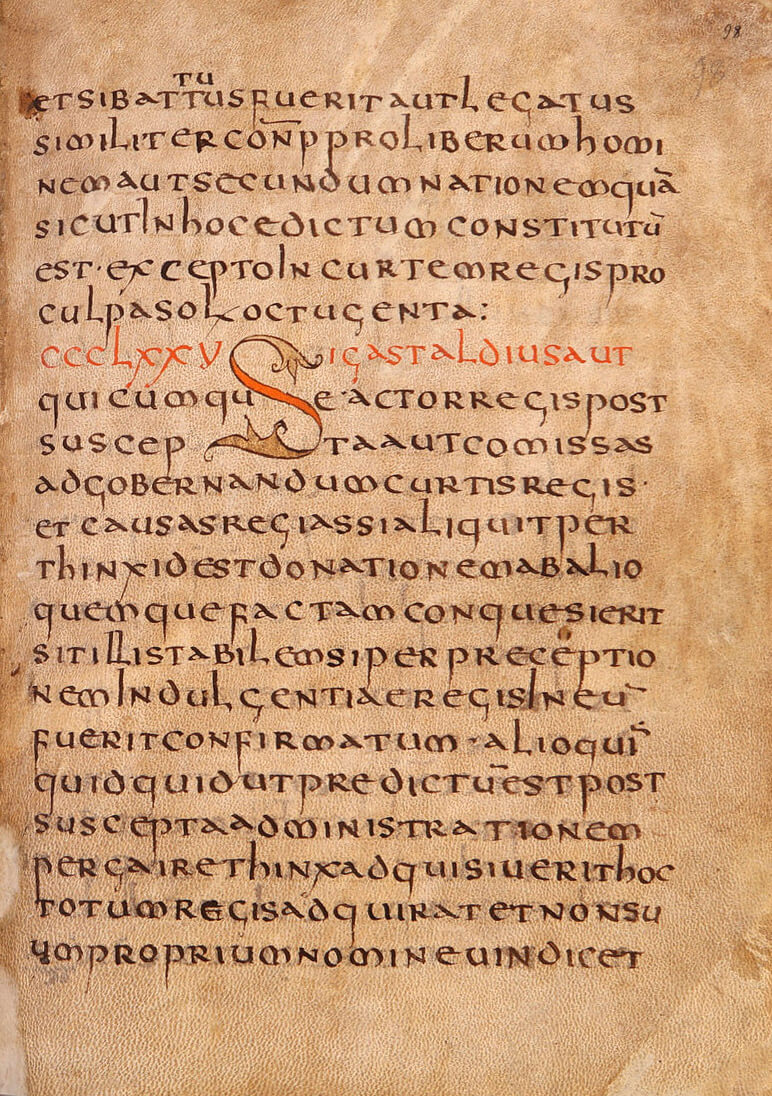 98
TU
ETSIBATTTUSFUERITAUTLEGATUS
SIMILITERCON̄PPROLIBERUMHOMI
NEMAUTSECUNDUMNATIONEMQUĀ
SICUTINHOCEDICTUMCONSTITUTŪ
EST·EXCEPTOINCURTEMREGISPRO
CULPASOLOCTUGENTA:
CCCLXXV SIGASTALDIUSAUT
QUICUMQUEACTORREGISPOST
SUSCEPTAAUTCOMISSAS
ADGOBERNANDUMCURTISREGIS·
ETCAUSASREGIASSIALIQUITPER
THINXIDESTDONATIONEMABALIO
QUEMQUEFACTAMCONQUESIERIT
SITILLISTABILEMSIPERPRECEPTIO
NEMINDULGENTIAEREGISINEŪ
FUERITCONFIRMATUM·ALIOQUI
QUIDQUIDUTPREDICTŪESTPOST
SUSCEPTAADMINISTRATIONEM
PERGAIRETHINXADQUISIUERITHOC
TOTUMREGISADQUIRATETNONSU
UMPROPRIUMNOMINEUINDICET